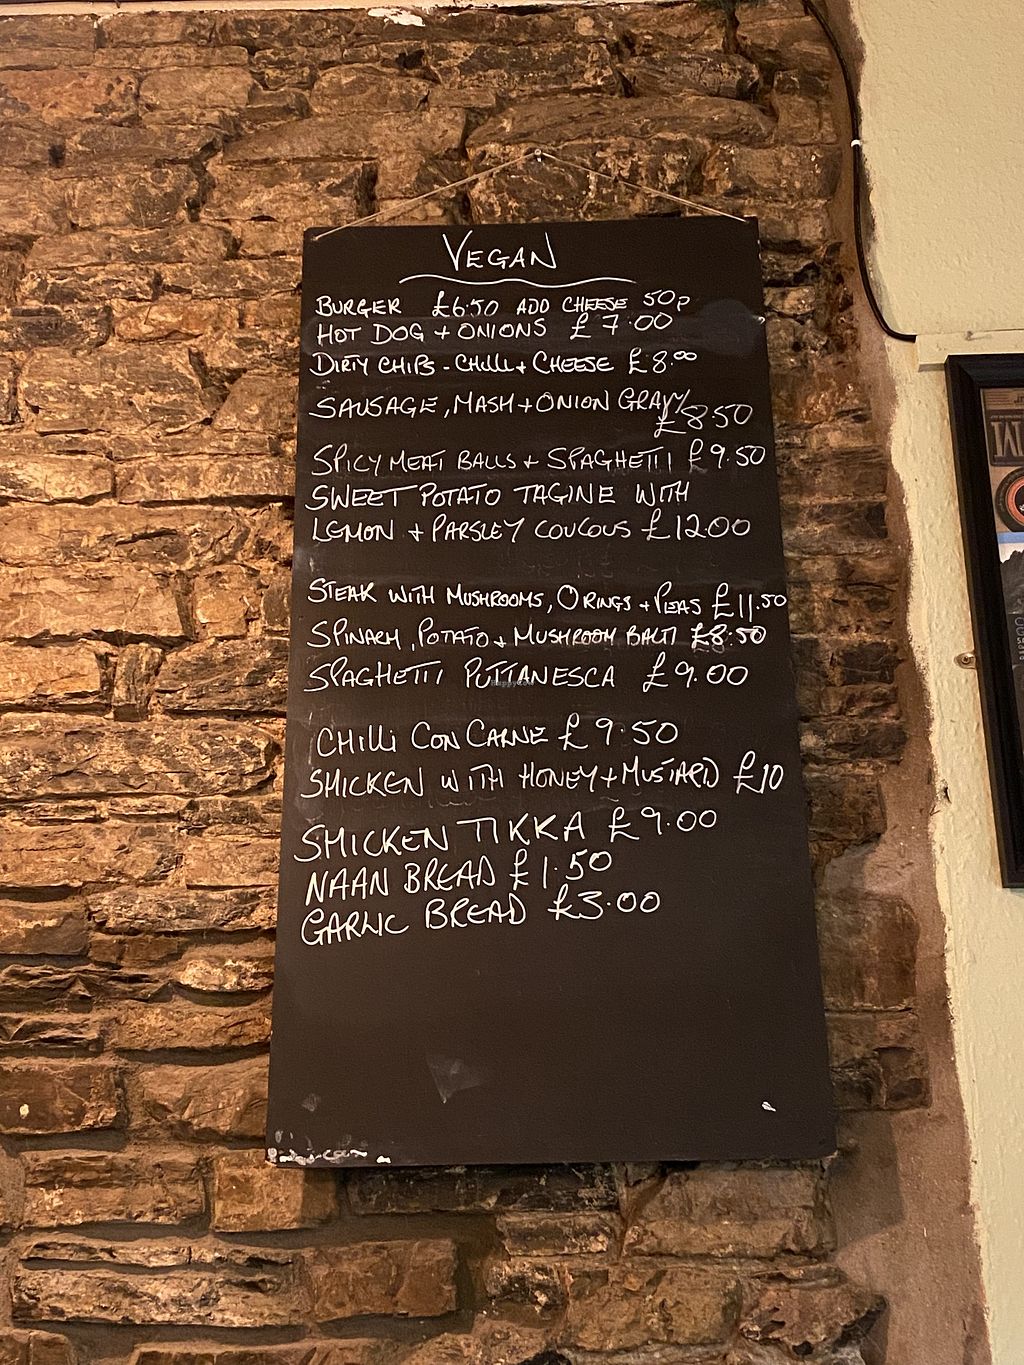 VEGAN
BURGER £6.50 ADD CHEESE 50p
HOT DOG + ONIONS £7.00
DIRTY CHIPS - CHILLI + CHEESE £8.00
SAUSAGE, MASH + ONION GRAVY
£8.50
SPICY MEAT BALLS + SPAGHETTI £9.50
SWEET POTATO TAGINE WITH
LEMON + PARSLEY COUCOUS £12.00
STEAK WITH MUSHROOMS, O RINGS + PEAS £11.50
SPINACH, POTATO + MUSHROOM BALTI £8.50
SPAGHETTI PUTTANESCA £9.00
HappyCow
CHILLI CON CARNE £9.50
SHICKEN WITH HONEY + MUSTARD £10
SHICKEN TIKKA £9.00
NAAN BREAD £1.50
GARLIC BREAD £3.00